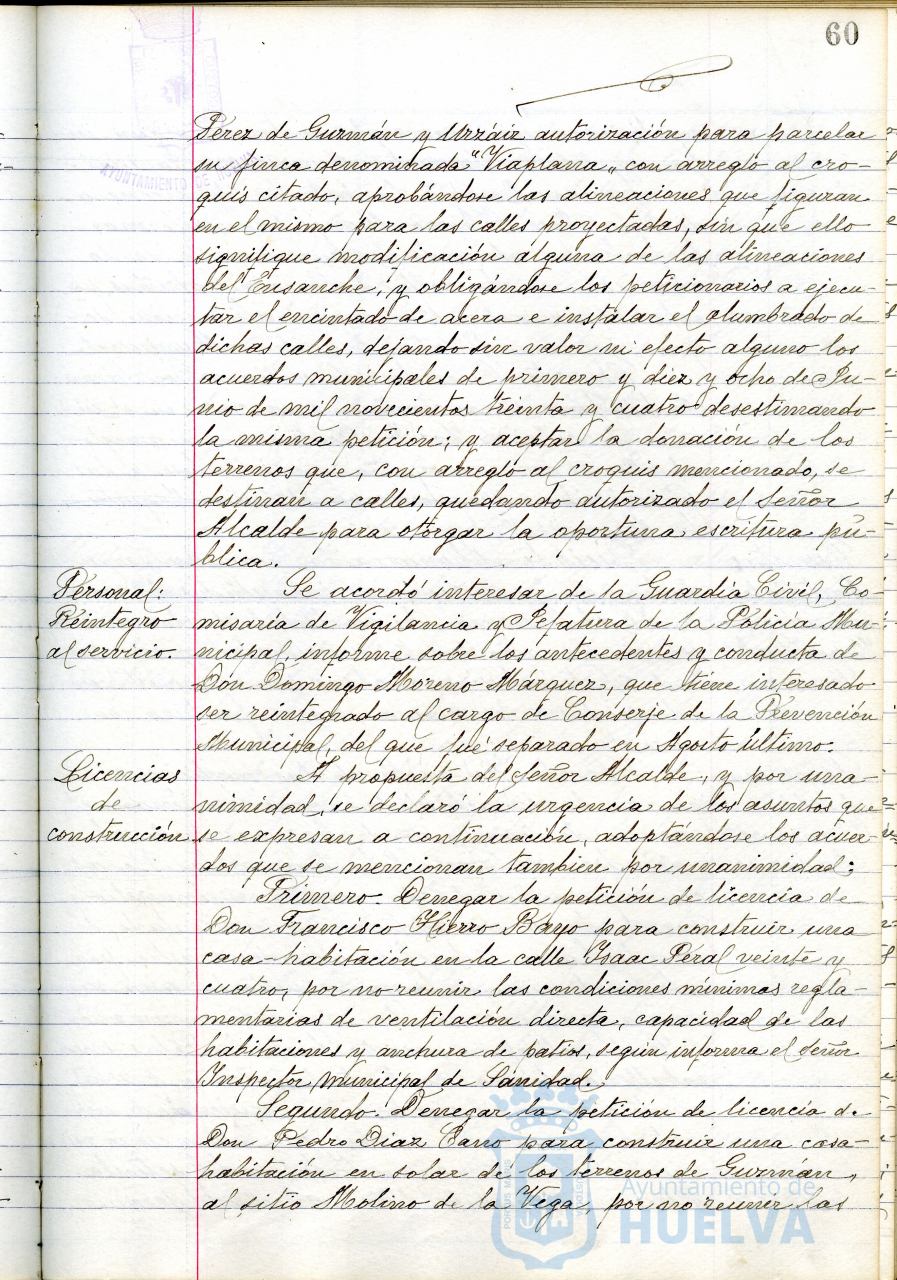 60
Pérez de Guzmán y Urzáiz autorización para parcelar
su finca denominada "Viaplana" con arreglo al cro-
quis citado, aprobándose las alineaciones que figuran
en el mismo para las calles proyectadas, sin que ello
signifique modificación alguna de las alineaciones
del Ensanche, y obligándose los peticionarios a ejecu-
tar el encintado de acera e instalar el alumbrado de
dichas calles, dejando sin valor ni efecto alguno los
acuerdos municipales de primero y diez y ocho de Ju-
nio de mil novecientos treinta y cuatro desestimando
la misma petición; y aceptar la donación de los
terrenos que, con arreglo al croquis mencionado, se
destinan a calles, quedando autorizado el Señor
Alcalde para otorgar la oportuna escritura pú-
blica.
Personal:
Reintegro
al servicio.
Se acordó interesar de la Guardia Civil, Co-
misaría de Vigilancia y Jefatura de la Policía Mu-
nicipal, informe sobre los antecedentes y conducta de
Don Domingo Moreno Márquez, que tiene interesado
ser reintegrado al cargo de Conserje de la Prevención
Municipal, del que fué separado en Agosto último.
Licencias
de
construcción
A propuesta del Señor Alcalde, y por una-
nimidad, se declaró la urgencia de los asuntos que
se expresan a continuación, adoptándose los acuer-
dos que se mencionan tambien por unanimidad:
Primero. Denegar la petición de licencia de
Don Francisco Hierro Bayo para construir una
casa-habitación en la calle Isaac Peral veinte y
cuatro, por no reunir las condiciones mínimas regla-
mentarias de ventilación directa, capacidad de las
habitaciones y anchura de patios, según informa el Señor
Inspector municipal de Sanidad.
Segundo. Denegar la petición de licencia de
Don Pedro Diaz para construir una casa-
habitación en solar de los terrenos de Guzmán,
al sitio Molino de la Vega, por no reunir las
Ayuntamiento de
HUELVA